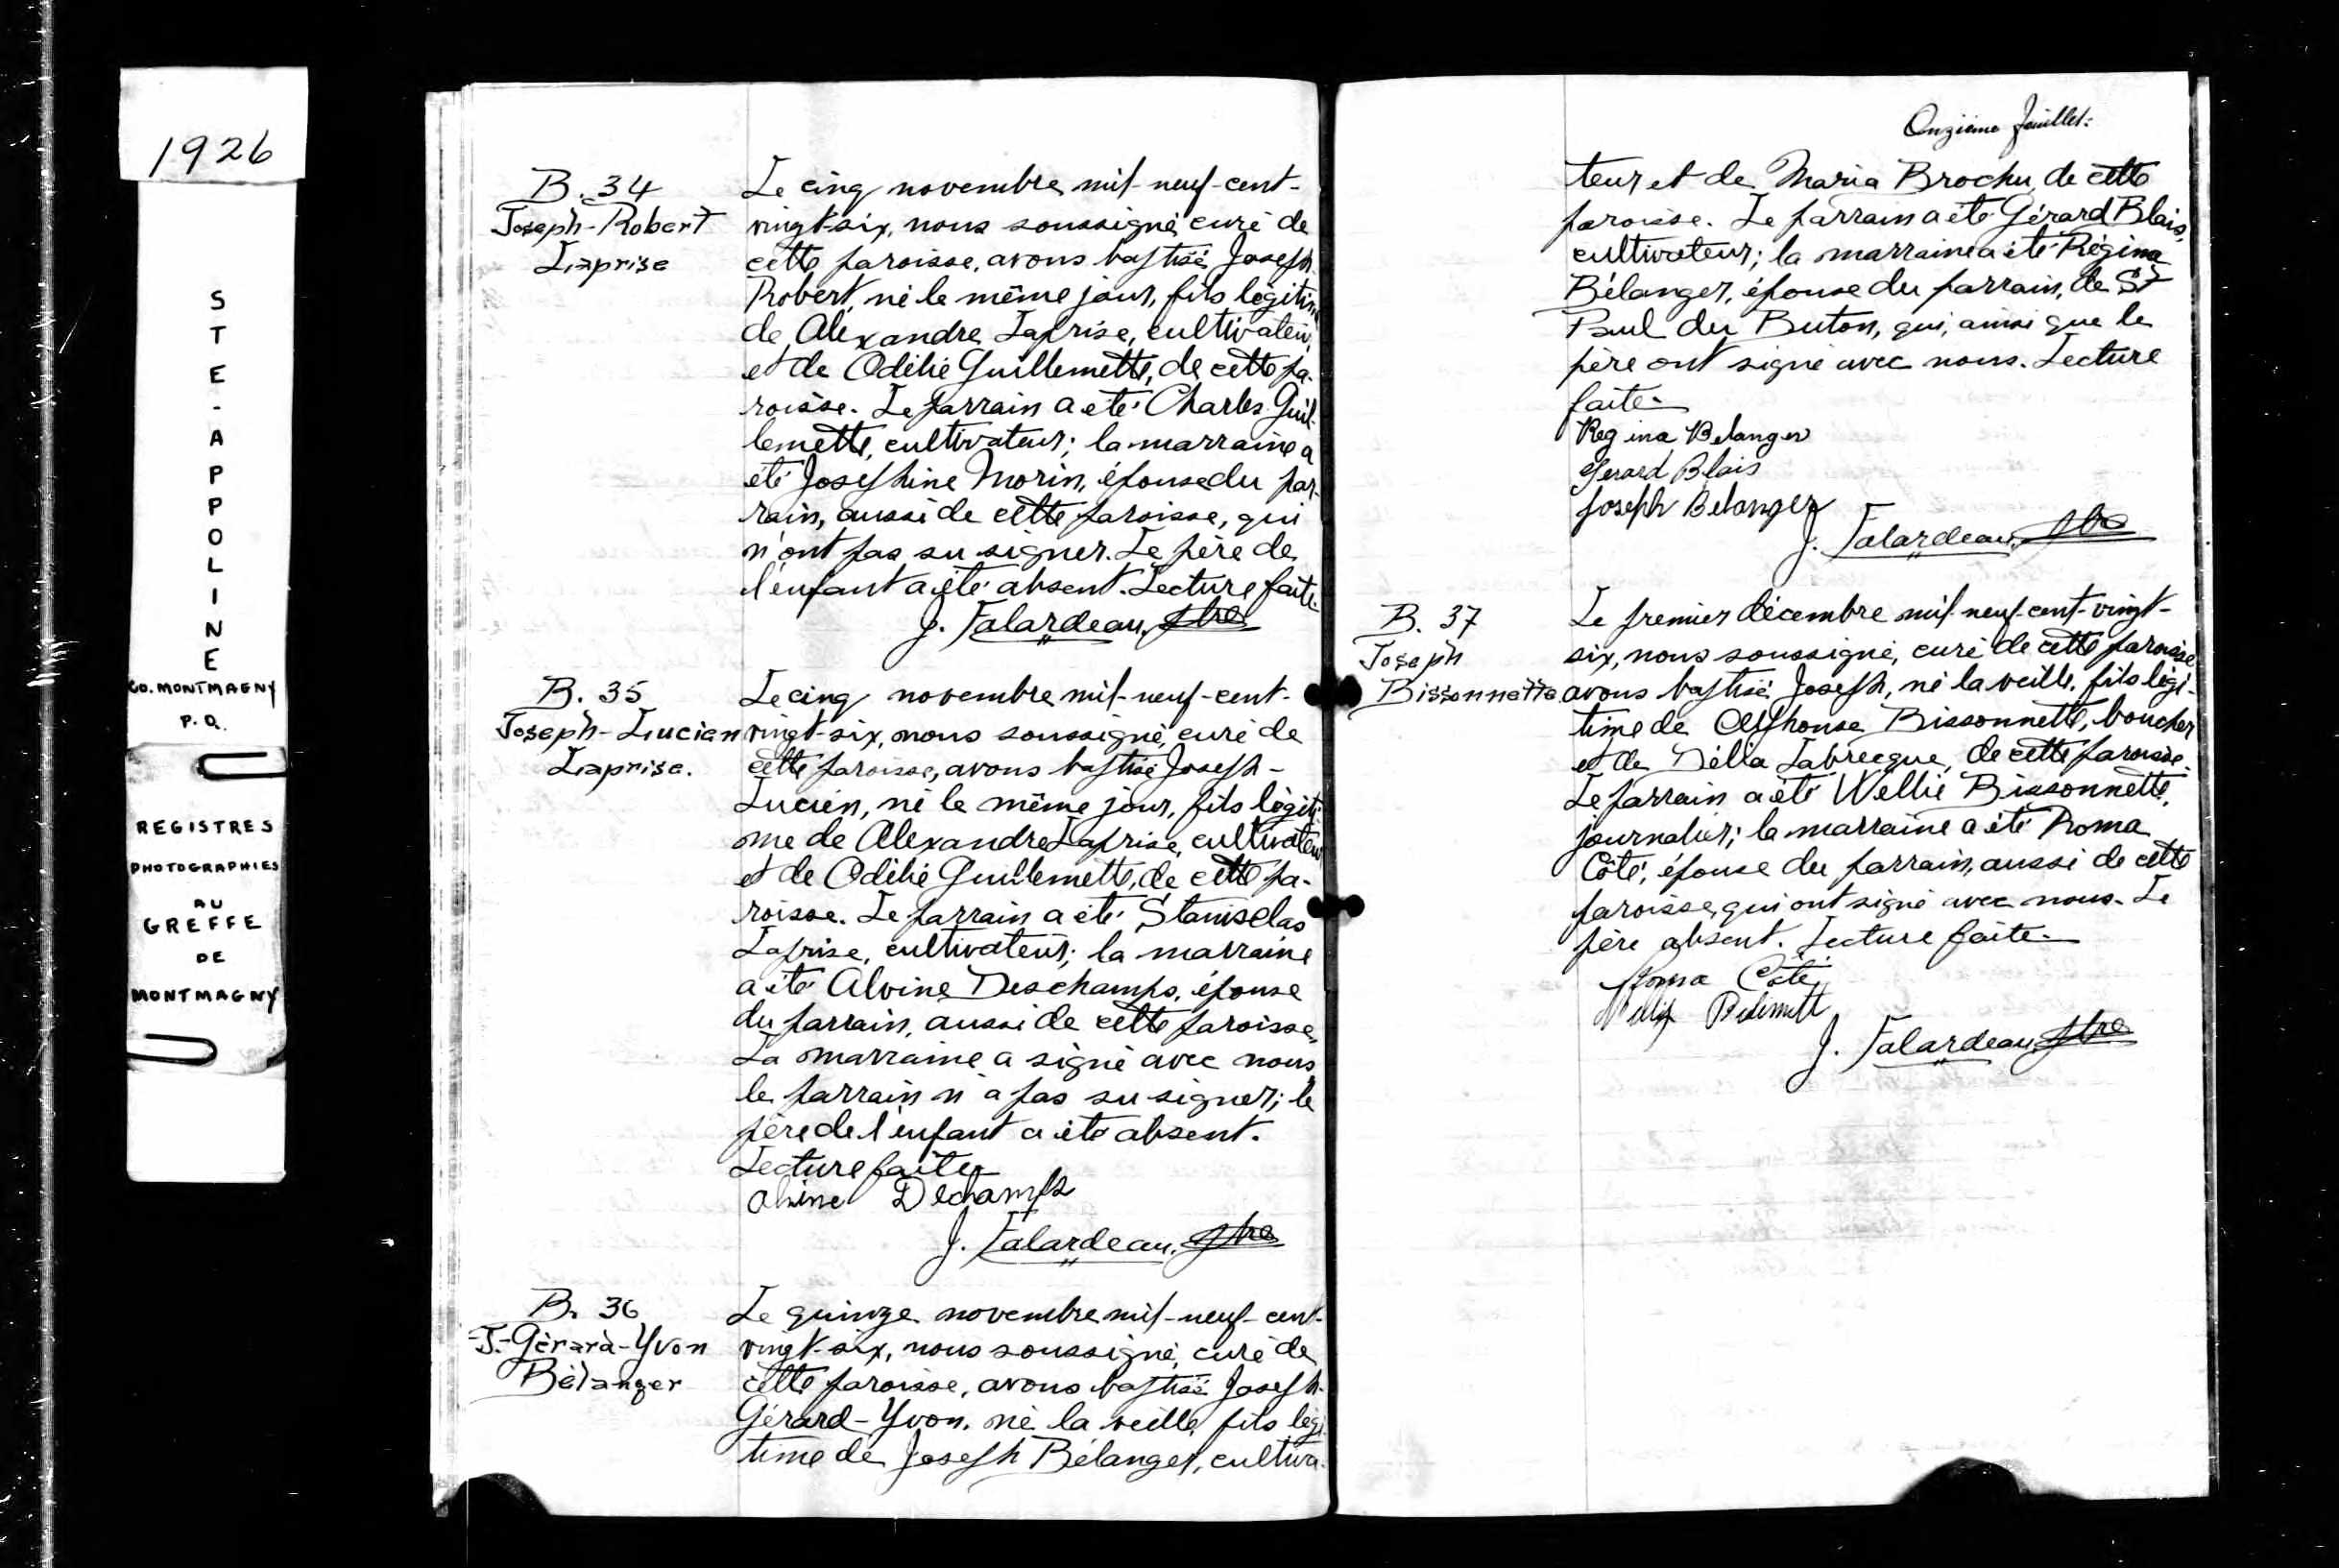 1926
STE-APPOLINE
CO. MONTMAGNY
P.Q.
REGISTRES
PHOTOGRAPHIES
AU
GREFFE
DE
MONTMAGNY
B. 34
Joseph-Robert
Laprise
Le cinq novembre mil-neuf-cent-
vingt-six, nous soussigné, curé de
cette paroisse, avons baptisé Joseph-
Robert, né le même jour, fils légitime
de Alexandre Laprise, cultivateur,
et de Odélie Guillemette, de cette pa-
roisse. Le parrain a été Charles Guil-
lemette, cultivateur; la marraine a
été Josephine Morin, épouse du par-
rain, aussi de cette paroisse, qui
n'ont pas su signer. Le père de
l'enfant a été absent. Lecture faite.
J. Falardeau, ptre
B. 35
Joseph-Lucien
Laprise.
Le cinq novembre mil-neuf-cent-
vingt-six, nous soussigné, curé de
cette paroisse, avons baptisé Joseph-
Lucien, né le même jour, fils légiti-
me de Alexandre Laprise, cultivateur
et de Odélie Guillemette, de cette pa-
roisse. Le parrain a été Stanislas
Laprise, cultivateur; la marraine
a été Alvine Deschamps, épouse
du parrain, aussi de cette paroisse.
La marraine a signé avec nous
le parrain n'a pas su signer; le
père de l'enfant a été absent.
Lecture faite
Alvine Dechamps
J. Falardeau, ptre
B. 36
J.-Gérard-Yvon
Bélanger
Le quinze novembre mil-neuf-cent-
vingt-six, nous soussigné, curé de
cette paroisse, avons baptisé Joseph-
Gérard-Yvon, né la veille, fils légi-
time de Joseph Bélanger, cultiva-
Onzième feuillet.
teur et de Maria Brochu, de cette
paroisse. Le parrain a été Gérard Blais,
cultivateur; la marraine a été Régina
Bélanger, épouse du parrain, de St
Paul du Buton, qui, ainsi que le
père ont signé avec nous. Lecture
faite.
Regina Belanger
Gerard Blais
Joseph Belanger
J. Falardeau, ptre
B. 37
Joseph
Bissonnette
Le premier décembre mil-neuf-cent-vingt-
six, nous soussigné, curé de cette paroisse
avons baptisé Joseph, né la veille, fils légi-
time de Alphonse Bissonnette, boucher
et de Délla Labrecque, de cette paroisse.
Le parrain a été Wellie Bissonnette,
journalier; la marraine a été Roma
Côté, épouse du parrain, aussi de cette
paroisse, qui ont signé avec nous. Le
père absent. Lecture faite.
Roma Côté
J. Falardeau, ptre